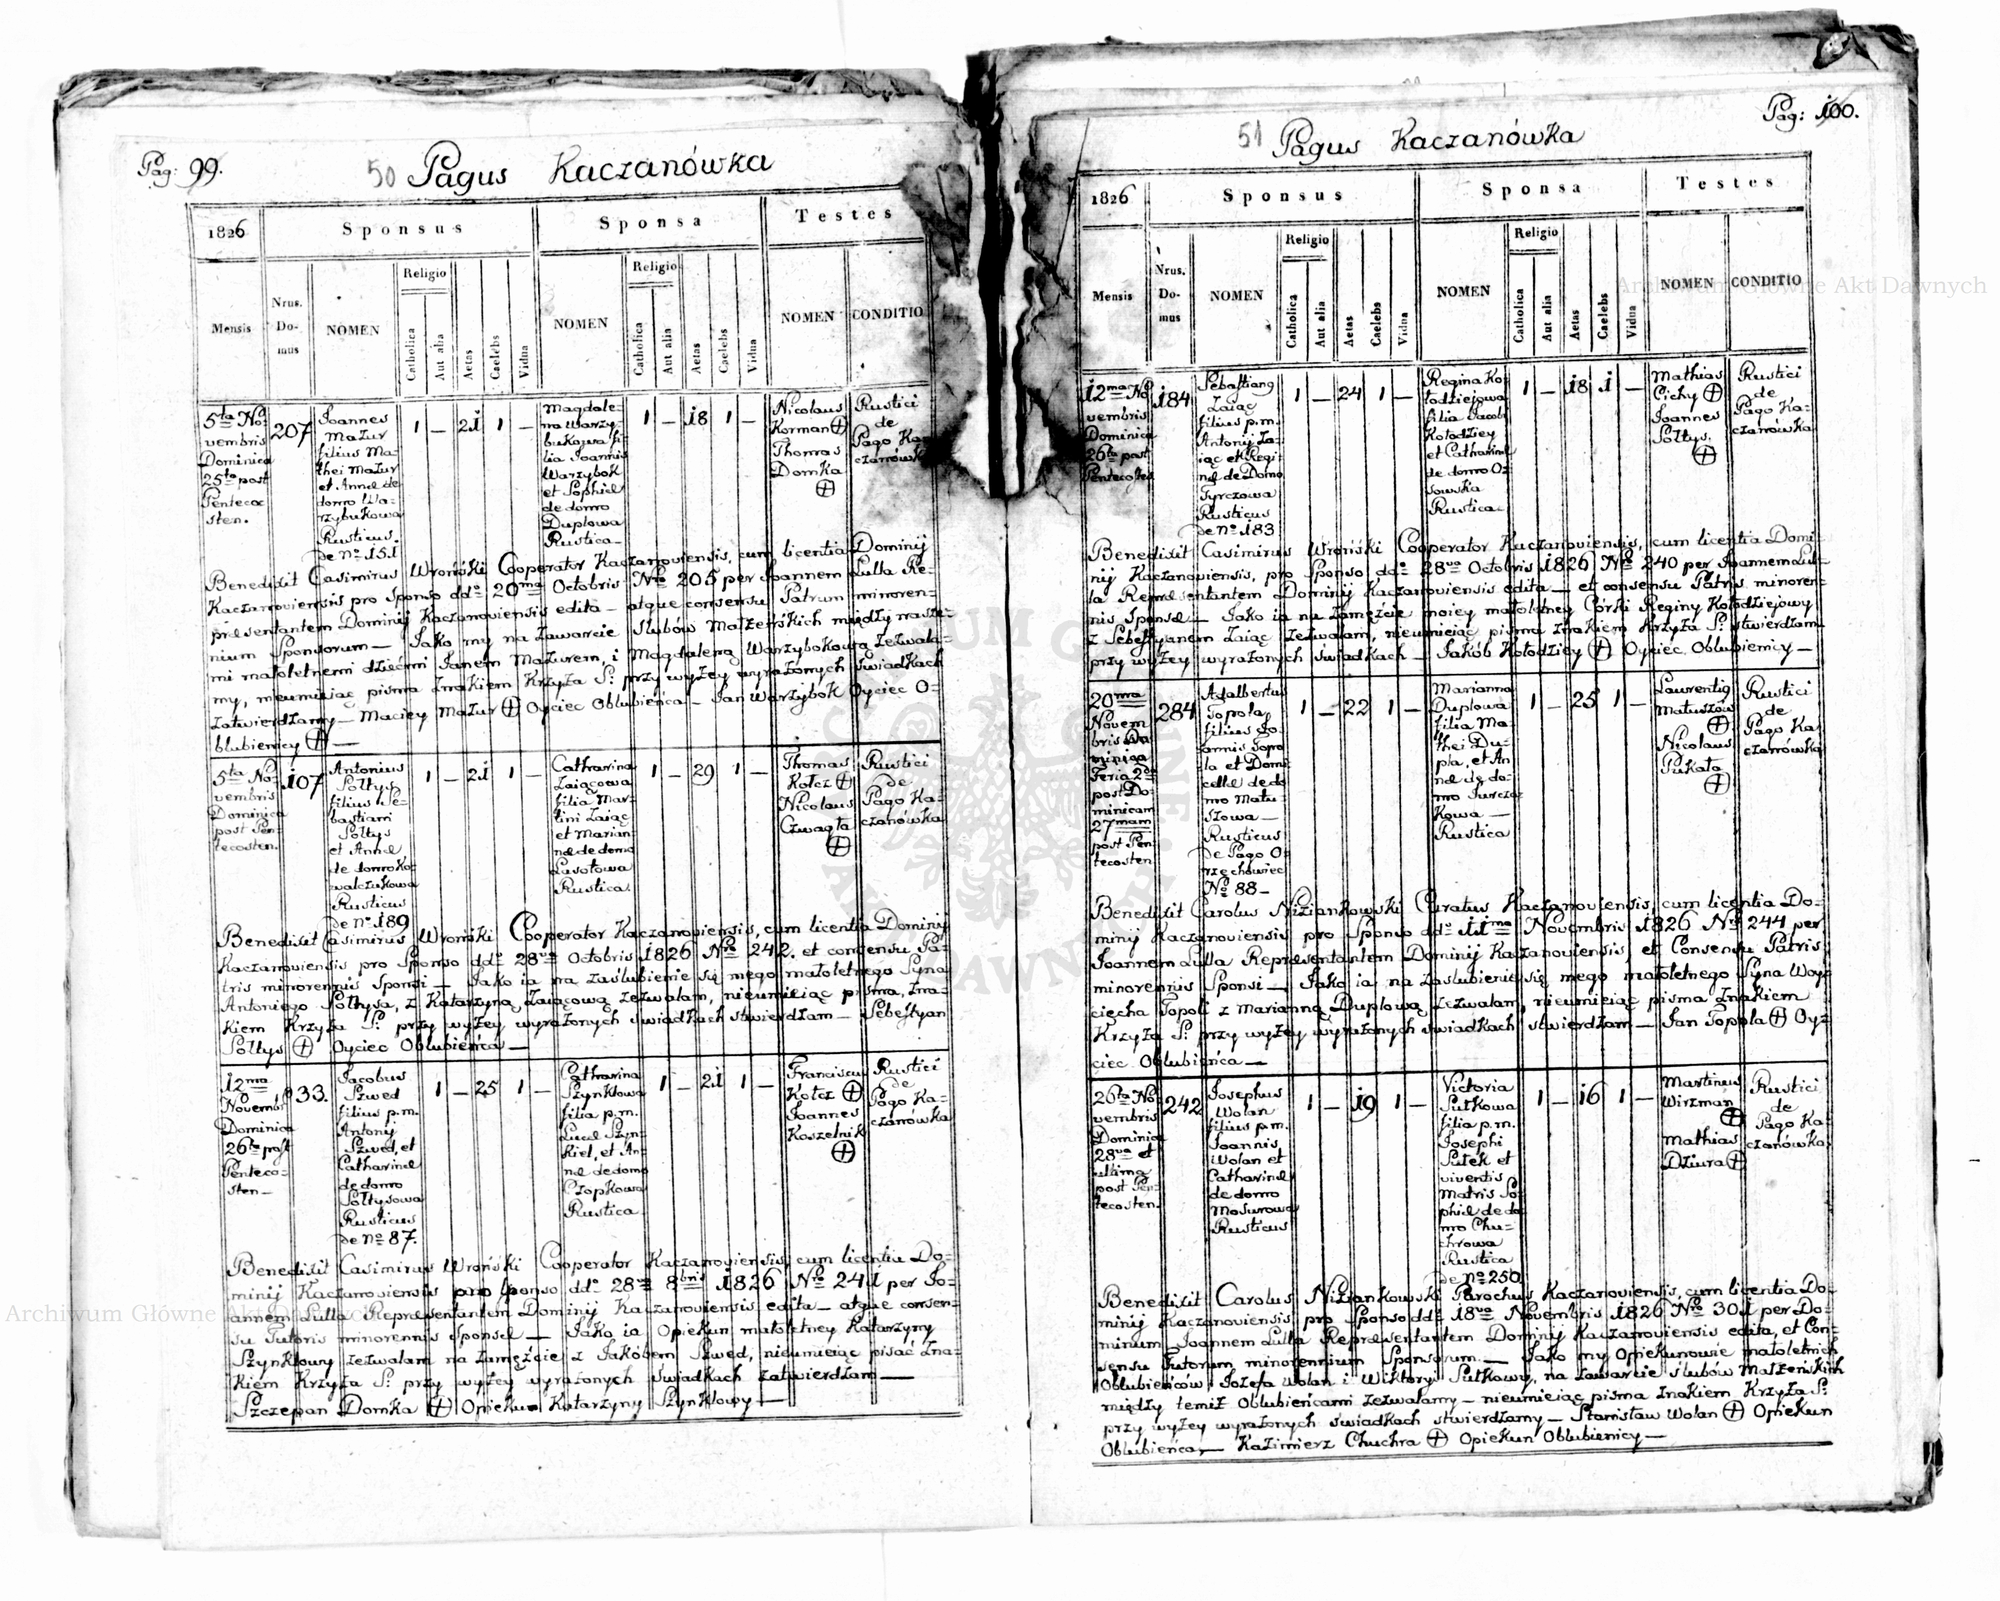 Pag: 99.
50 Pagus Kaczanówka
1826
Sponsus
Sponsa
Testes
Mensis
Nrus. Do- mus
NOMEN
Religio
Catholica
Aut alia
Aetas
Caelebs
Vidua
NOMEN
Religio
Catholica
Aut alia
Aetas
Caelebs
Vidua
NOMEN
CONDITIO
5ta No-
vembris
Dominica
25ta post
Penteco-
sten.
207
Joannes
Mazur
filius Ma-
thei Mazur
et Annæ de
domo Wa-
rzybukowa
Rusticus.
de No 151
1 — 21 1 —
Magdale-
na Warzy-
bukowa fi-
lia Joannis
Warzybok
et Sophiæ
de domo
Duplowa
Rustica
1 — 18 1 —
Nicolaus
Korman
Thomas
Domka
Rustici
de
Pago Ka-
czanówka
Benedixit Casimirus Wroński Cooperator Kaczanoviensis, cum licentia Dominij
Kaczanoviensis pro Sponso ddo 20ma Octobris Nro 205 per Joannem Lulla Re-
præsentantem Dominij Kaczanoviensis edita — atque consensu Patrum minoren-
nium Sponsorum — Jako my na zawarcie Ślubów Małżeńskich między nasze-
mi małoletnemi dziećmi Janem Mazurem, i Magdaleną Warzybokową zezwala-
my, nieumiejąc pisma Znakiem Krzyża S. przy wyżey wyrażonych Świadkach
zatwierdzamy — Maciey Mazur Oyciec Oblubieńca — Jan Warzybok Oyciec O-
blubienicy —
5ta No-
vembris
Dominica
post Pen-
tecosten.
107
Antonius
Sołtys
filius Se-
bastiani
Sołtys
et Annæ
de domo Ko-
walczukowa
Rusticus
de No 189
1 — 21 1 —
Catharina
Zaiącowa
filia Mar-
tini Zaiąc
et Marian-
næ de domo
Lasotowa
Rustica
1 — 29 1 —
Thomas
Kołcz
Nicolaus
Czwagta
Rustici
de
Pago Ka-
czanówka
Benedixit Casimirus Wroński Cooperator Kaczanoviensis, cum licentia Dominij
Kaczanoviensis pro Sponso ddo 28va Octobris 1826 Nro 242. et consensu Pa-
tris minorennis Sponsi — Jako ia na zaślubienie się mego małoletnego Syna
Antoniego Sołtysa, z Katarzyną Zaiącową zezwalam, nieumieiąc pisma, Zna-
kiem Krzyża S. przy wyżey wyrażonych Świadkach stwierdzam — Sebestyan
Sołtys Oyciec Oblubieńca —
12ma
Novembr
Dominica
26ta post
Penteco-
sten —
33.
Jacobus
Szwed
filius p.m.
Antonij
Szwed, et
Catharinæ
de domo
Sołtysowa
Rusticus
de No 87.
1 — 25 1 —
Catharina
Szynklowa
filia p.m.
Lucæ Szyn-
kiel, et An-
næ de domo
Czopkowa
Rustica
1 — 21 1 —
Franciscus
Kołcz
Joannes
Koszelnik
Rustici
de
Pago Ka-
czanówka
Benedixit Casimirus Wroński Cooperator Kaczanoviensis, cum licentia Do-
minij Kaczanoviensis pro Sponso ddo 28va 8bris 1826 Nro 241 per Jo-
annem Lulla Repræsentantem Dominij Kaczanoviensis edita — atque consen-
su Tutoris minorennis Sponsæ — Jako ia Opiekun małoletney Katarzyny
Szynklowy zezwalam na zamęźcie z Jakóbem Szwed, nieumieiąc pisać Zna-
kiem Krzyża S. przy wyżey wyrażonych Świadkach zatwierdzam —
Szczepan Domka Opiekun Katarzyny Szynklowy —
Pag: 100.
51 Pagus Kaczanówka
1826
Sponsus
Sponsa
Testes
Mensis
Nrus. Do- mus
NOMEN
Religio
Catholica
Aut alia
Aetas
Caelebs
Vidua
NOMEN
Religio
Catholica
Aut alia
Aetas
Caelebs
Vidua
NOMEN
CONDITIO
12ma No-
vembris
Dominica
26ta post
Pentecosten
184
Sebastiang
Zaiąc
filius p.m.
Antonij Za-
iąc et Regi-
næ de Domo
Tyrczowa
Rusticus
de No 183
1 — 24 1 —
Regina Ko-
łodziejowa
filia Jacobi
Kołodziey
et Catharinæ
de domo Oz-
sowska
Rustica
1 — 18 1 —
Mathias
Cichy
Joannes
Sołtys.
Rustici
de
Pago Ka-
czanówka
Benedixit Casimirus Wroński Cooperator Kaczanoviensis, cum licentia Domi-
nij Kaczanoviensis, pro Sponso ddo 28va Octobris 1826 Nro 240 per Joannem Lul-
la Repræsentantem Dominij Kaczanoviensis edita — et consensu Patris minoren-
nis Sponsæ — Jako ia na zamęźcie moiey małoletney Córki Reginy Kołodziejowy
z Sebestyanem Zaiąc zezwalam, nieumieiąc pisma Znakiem Krzyża S. stwierdzam
przy wyżey wyrażonych Świadkach — Jakób Kołodziey Oyciec Oblubienicy —
20ma
Novem
bris
Feria 2da
post Do-
minicam
27mam
post Pen-
tecosten
284
Adalbertus
Topola
filius Jo-
annis Topo-
la et Domi-
cellæ de do-
mo Matu-
szowa —
Rusticus
de Pago O-
rzechowiec
No 88 —
1 — 22 1 —
Marianna
Duplowa
filia Ma-
thei Du-
pla, et An-
næ de do-
mo Jurcza-
kowa —
Rustica
1 — 25 1 —
Laurentig
Matuszów
Nicolaus
Pukało
Rustici
de
Pago Ka-
czanówka
Benedixit Carolus Niziankowski Curatus Kaczanoviensis, cum licentia Do-
minij Kaczanoviensis pro Sponso ddo 11ma Novembris 1826 Nro 244 per
Joannem Lulla Repræsentantem Dominij Kaczanoviensis, et Consensu Patris
minorennis Sponsi — Jako ia na zaślubienie się mego małoletnego Syna Woy-
ciecha Topoli z Marianną Duplową zezwalam, nieumieiąc pisma Znakiem
Krzyża S. przy wyżey wyrażonych Świadkach stwierdzam — Jan Topola Oy-
ciec Oblubieńca —
26ta No-
vembris
Dominica
28va et
ultima
post Pen-
tecosten.
242
Josephus
Wolan
filius p.m.
Joannis
Wolan et
Catharinæ
de domo
Mosurowa
Rusticus
1 — 19 1 —
Victoria
Sutkowa
filia p.m.
Josephi
Sutek et
viventis
Matris So-
phiæ de do-
mo Chu-
chrowa
Rustica
de No 250
1 — 16 1 —
Martinus
Wirzman
Mathias
Dziura
Rustici
de
Pago Ka-
czanówka
Benedixit Carolus Niziankowski Parochus Kaczanoviensis, cum licentia Do-
minij Kaczanoviensis pro Sponso ddo 18va Novembris 1826 Nro 301 per Do-
minum Joannem Lulla Repræsentantem Dominij Kaczanoviensis edita, et Con-
sensu Tutorum minorennium Sponsorum — Jako my Opiekunowie małoletnich
Oblubieńców Jozefa Wolan i Wiktoryi Sutkowy, na zawarcie ślubów Małżeńskich
między temiż Oblubieńcami zezwalamy — nieumieiąc pisma Znakiem Krzyża S.
przy wyżey wyrażonych świadkach stwierdzamy — Stanisław Wolan Opiekun
Oblubieńca, — Kazimierz Chuchra Opiekun Oblubienicy —
Archiwum Główne Akt Dawnych
Archiwum Główne Akt Dawnych